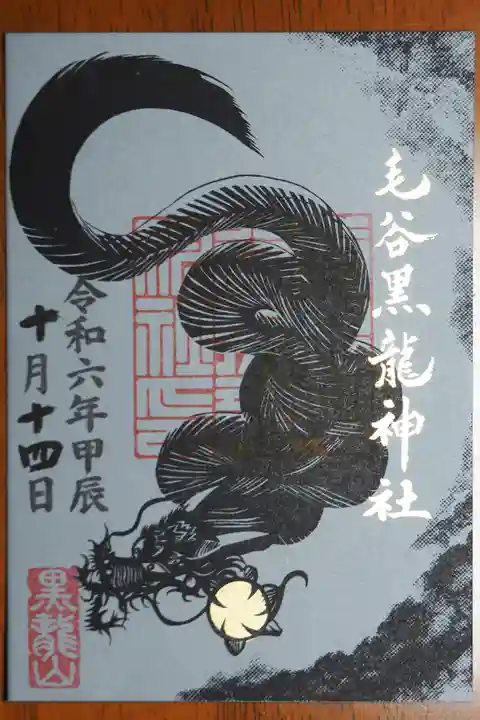 毛谷黒龍神社
令和六年甲辰
十月十四日
黒龍山